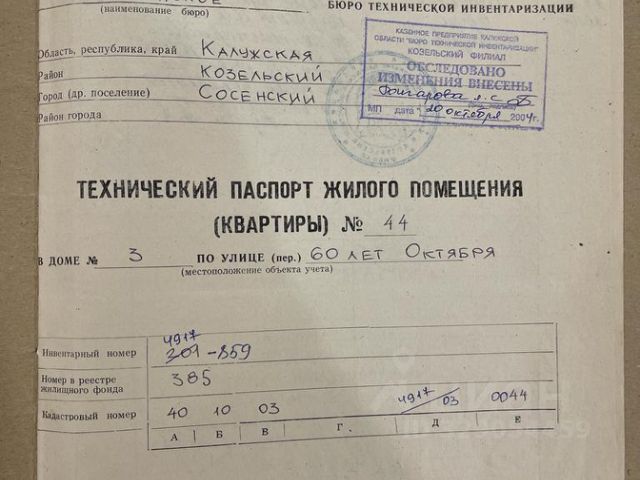 (наименование бюро)
БЮРО ТЕХНИЧЕСКОЙ ИНВЕНТАРИЗАЦИИ
Область, республика, край Калужская
Район Козельский
Город (др. поселение) Сосенский
Район города
КАЗЕННОЕ ПРЕДПРИЯТИЕ КАЛУЖСКОЙ
ОБЛАСТИ "БЮРО ТЕХНИЧЕСКОЙ ИНВЕНТАРИЗАЦИИ"
КОЗЕЛЬСКИЙ ФИЛИАЛ
ОБСЛЕДОВАНО
ИЗМЕНЕНИЯ ВНЕСЕНЫ
МП дата "20 октября 2004г.
ТЕХНИЧЕСКИЙ ПАСПОРТ ЖИЛОГО ПОМЕЩЕНИЯ
(КВАРТИРЫ) № 44
В ДОМЕ № 3 ПО УЛИЦЕ (пер.) 60 лет Октября
(местоположение объекта учета)
4917
Инвентарный номер 301-859
Номер в реестре
жилищного фонда 385
Кадастровый номер 40 10 03 4917/03 0044
А Б В Г. Д Е